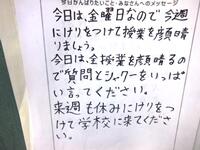 今日がんばりたいこと・みなさんへのメッセージ
今日は、金曜日なので今週
にけりをつけて授業を頑晴
りましょう。
今日は、全授業を頑晴るの
で質問とジョークをいっぱ
い言ってください。
来週も休みにけりをつ
けて学校に来てくださ
い。